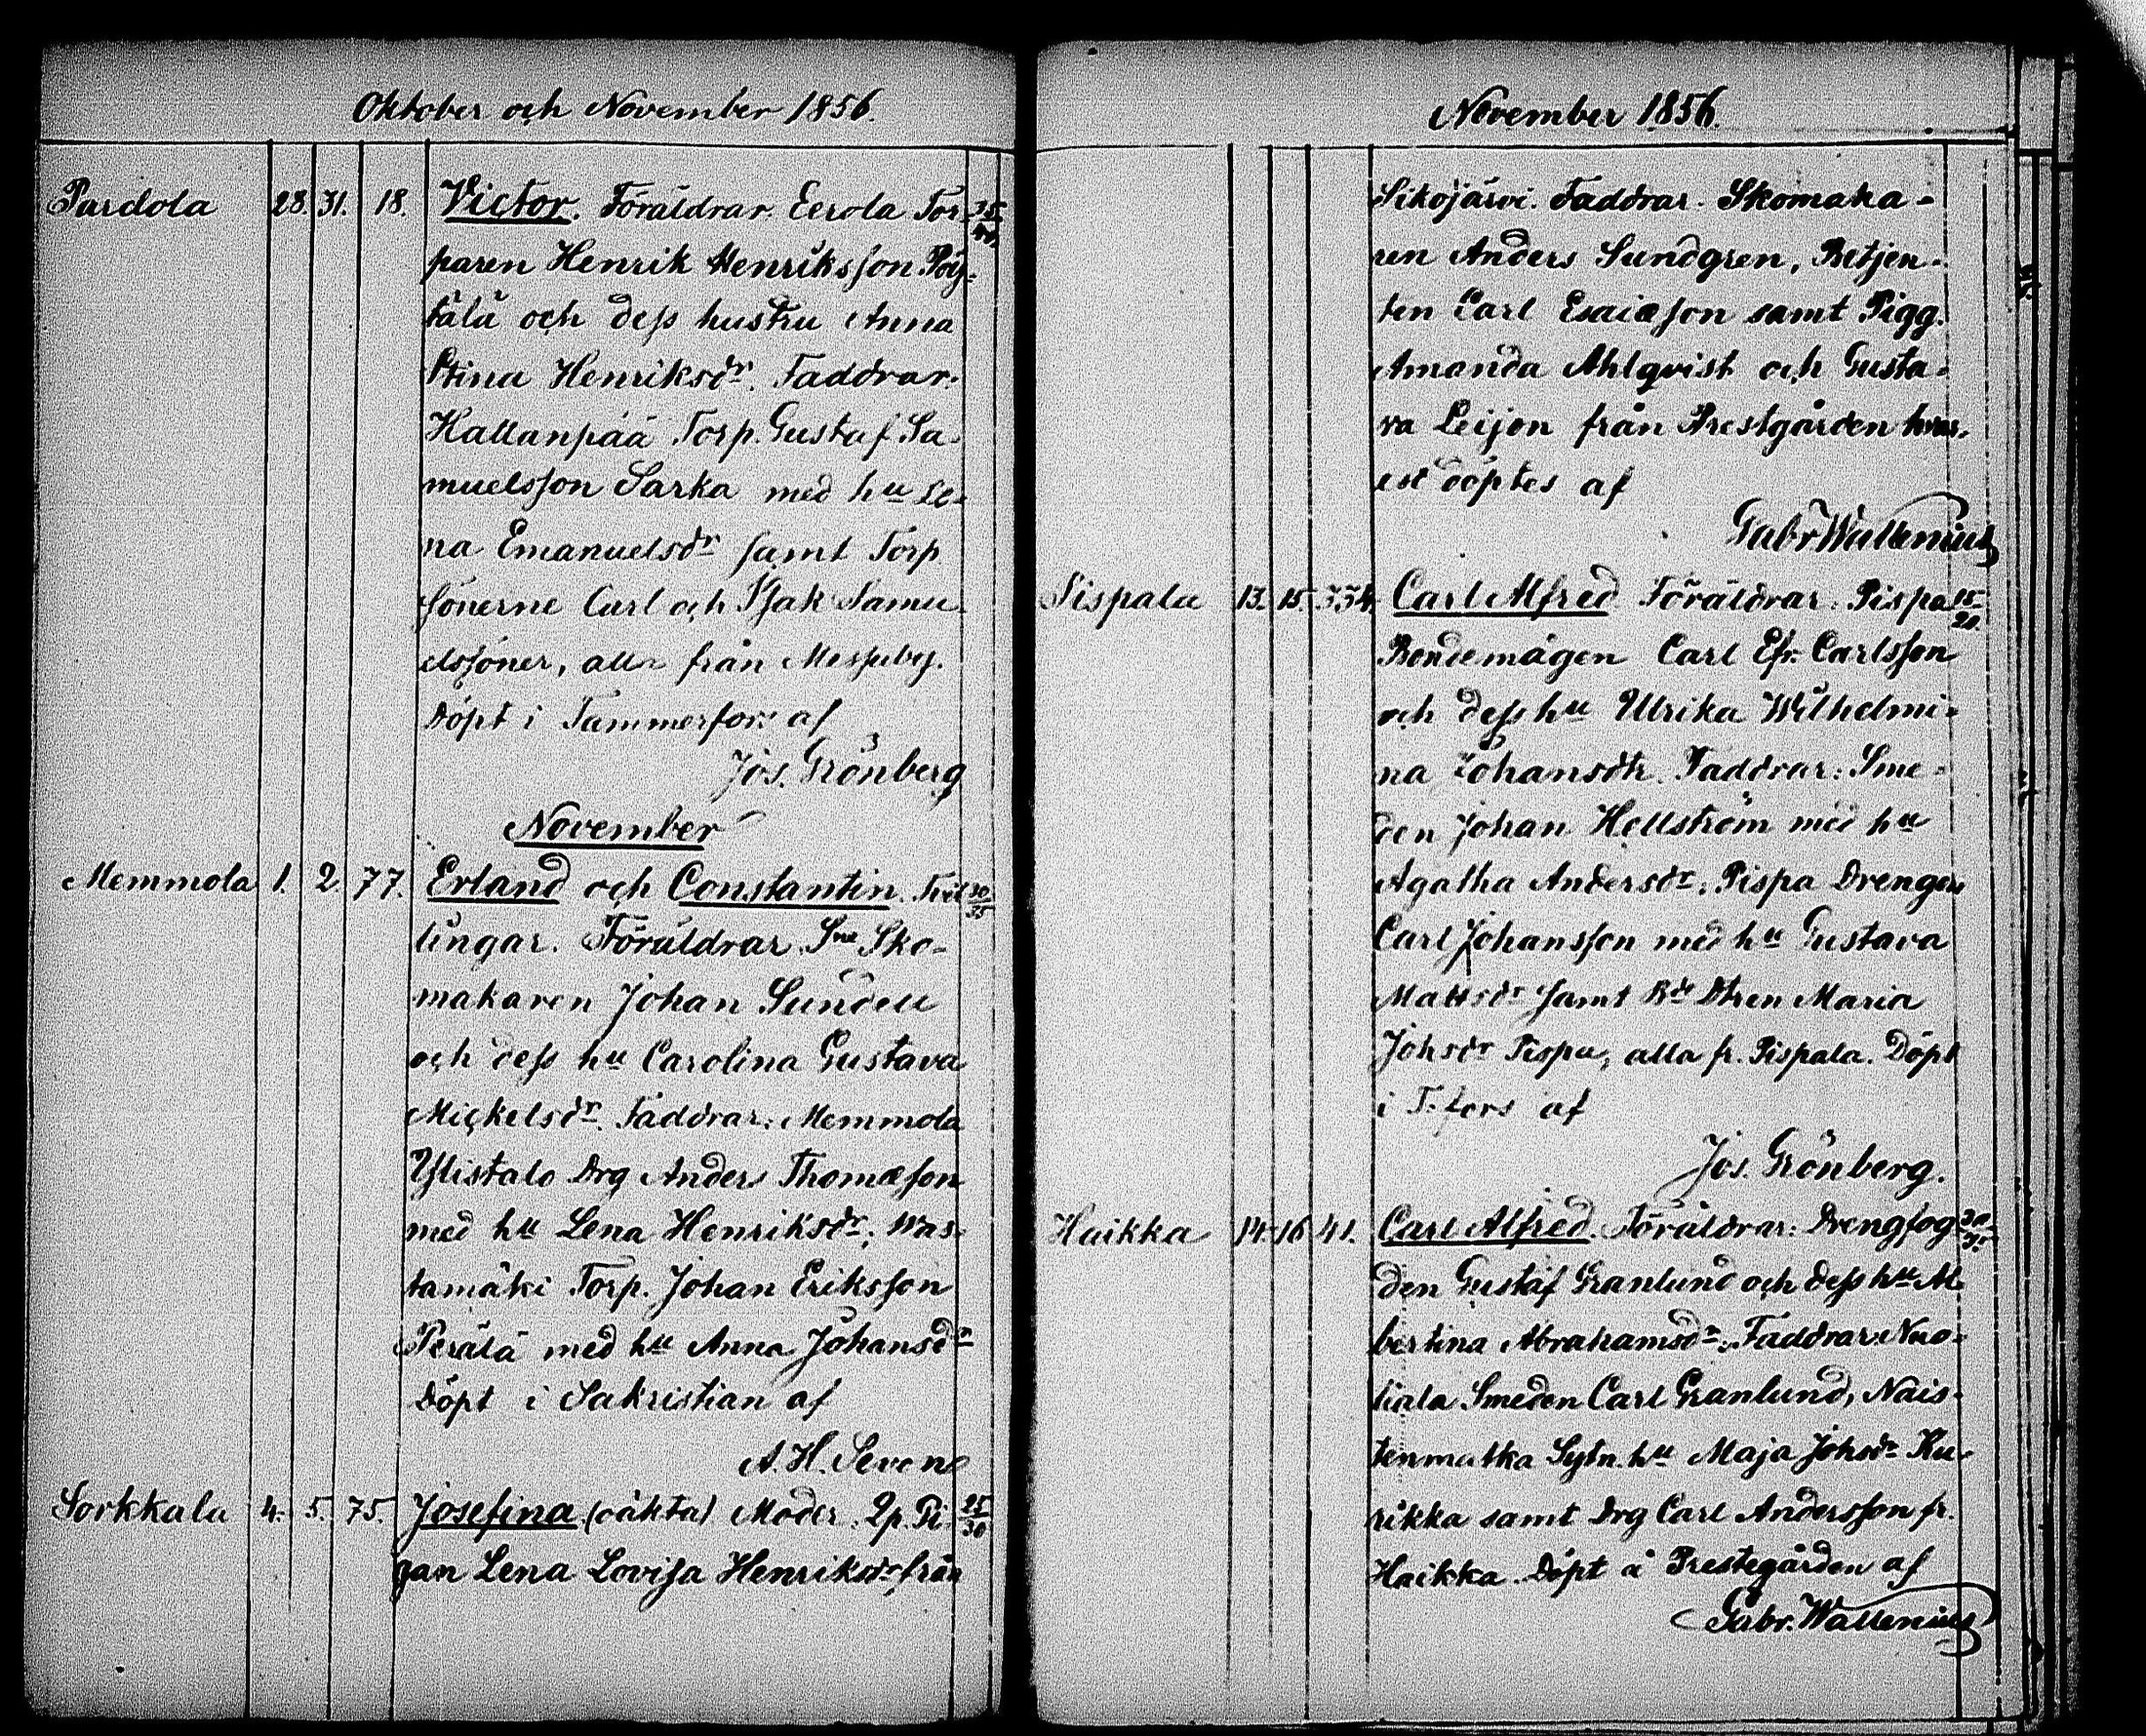 Oktober och November 1856.
Pardola 28. 31. 18. Victor. Föräldrar. Eerola Tor-
paren Henrik Henriksson Pöy-
tälä och dess hustru Anna
Stina Henriksdr. Faddrar.
Hallanpää Torp. Gustaf Sa-
muelsson Sarka med hu Le-
na Emanuelsdr samt Torp
sönerne Carl och Isak Samu-
elssöner, alla från Messuby.
Döpt i Tammerfors af
Jos. Grönberg
November
Memmola 1. 2 77. Erland och Constantin. Tvil 30/35
lingar. Föräldrar Sne Sko-
makaren Johan Sundell
och dess hu Carolina Gustava
Mickelsdr. Faddrar: Memmola
Ylistalo Drg Anders Thomæson
med hu Lena Henriksdr, Was-
tamäki Torp. Johan Eriksson
Perälä med hu Anna Johansdr
Döpt i Sakristian af
A. H. Sevon
Sorkkala 4. 5. 75. Josefina (oäkta) Moder. Ip. Pi- 25/30
gan Lena Lovisa Henriksdr från
November 1856.
Sikojärvi. Faddrar. Skomaka-
ren Anders Sundgren, Betjen-
ten Carl Esaiæson samt Pigg.
Amanda Ahlqvist och Gusta-
va Leijon från Prestgården hvar-
est döptes af
Gabr Wallenius
Pispala 13. 15. 334. Carl Alfred Föräldrar: Pispa 15/20.
Bondemågen Carl Efr. Carlsson
och dess hu Ulrika Wilhelmi-
na Johansdtr. Faddrar: Sme-
den Johan Hellström med hu
Agatha Andersdr, Pispa Drengen
Carl Johansson med hu Gustava
Mattsdr samt Bde Dtren Maria
Johsdr Pispa, alla fr. Pispala. Döpt
i T:fors af
Jos. Grönberg.
Haikka 14. 16 41. Carl Alfred. Föräldrar: Drengfog-
den Gustaf Granlund och dess hu Al-
bertina Abrahamsdr. Faddrar: Nuo-
liala Smeden Carl Granlund, Nais-
tenmatka Sytn. hu Maja Johsdr Ku-
rikka samt Drg Carl Andersson fr.
Haikka. Döpt å Prestegården af
Gabr. Wallenius